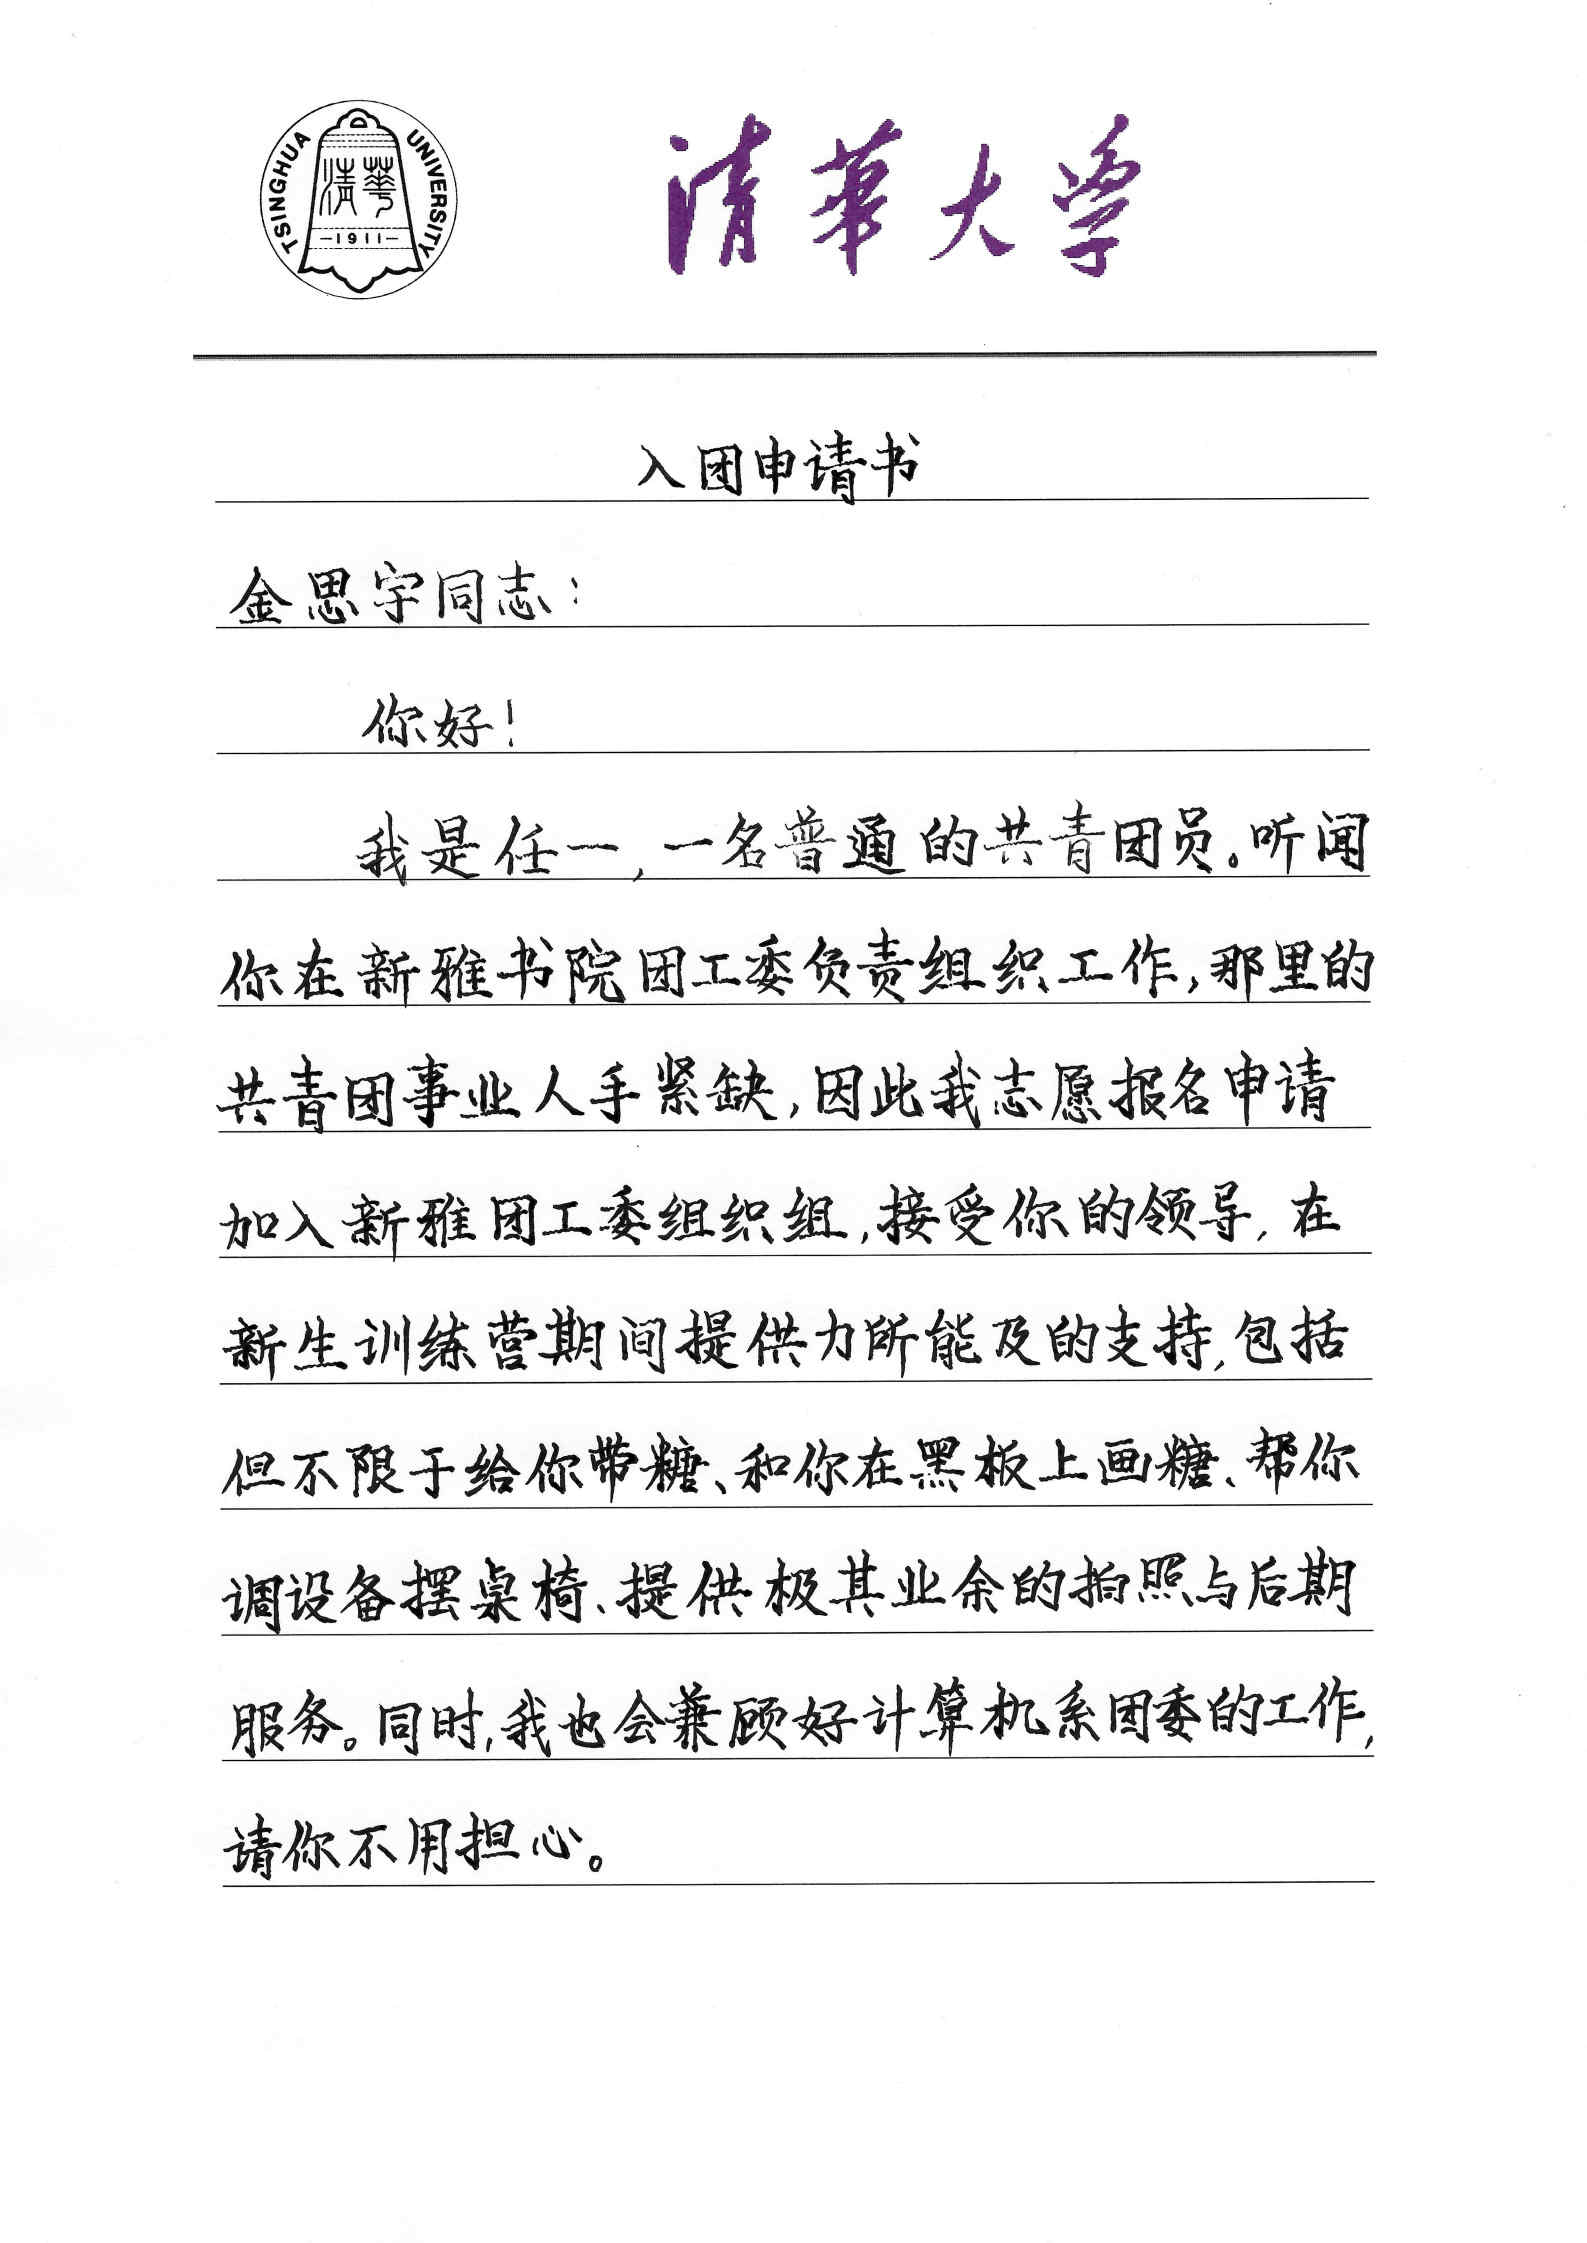 TSINGHUA UNIVERSITY
清華
1911
清華大学
入团申请书
金思宇同志：
你好！
我是任一，一名普通的共青团员。听闻
你在新雅书院团工委负责组织工作，那里的
共青团事业人手紧缺，因此我志愿报名申请
加入新雅团工委组织组，接受你的领导，在
新生训练营期间提供力所能及的支持，包括
但不限于给你带糖、和你在黑板上画糖、帮你
调设备摆桌椅、提供极其业余的拍照与后期
服务。同时，我也会兼顾好计算机系团委的工作，
请你不用担心。